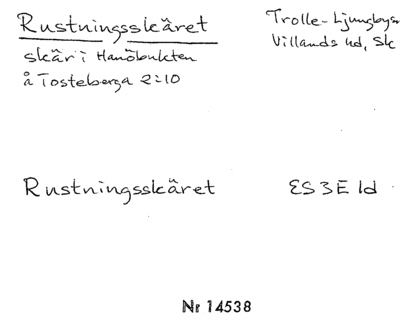 Rustningsskäret
Trolle-Ljungby s
Villands hd, Sk
skär i Hanöbukten
å Tosteberga 2:10
Rustningsskäret
ES 3E 1d
Nr 14538